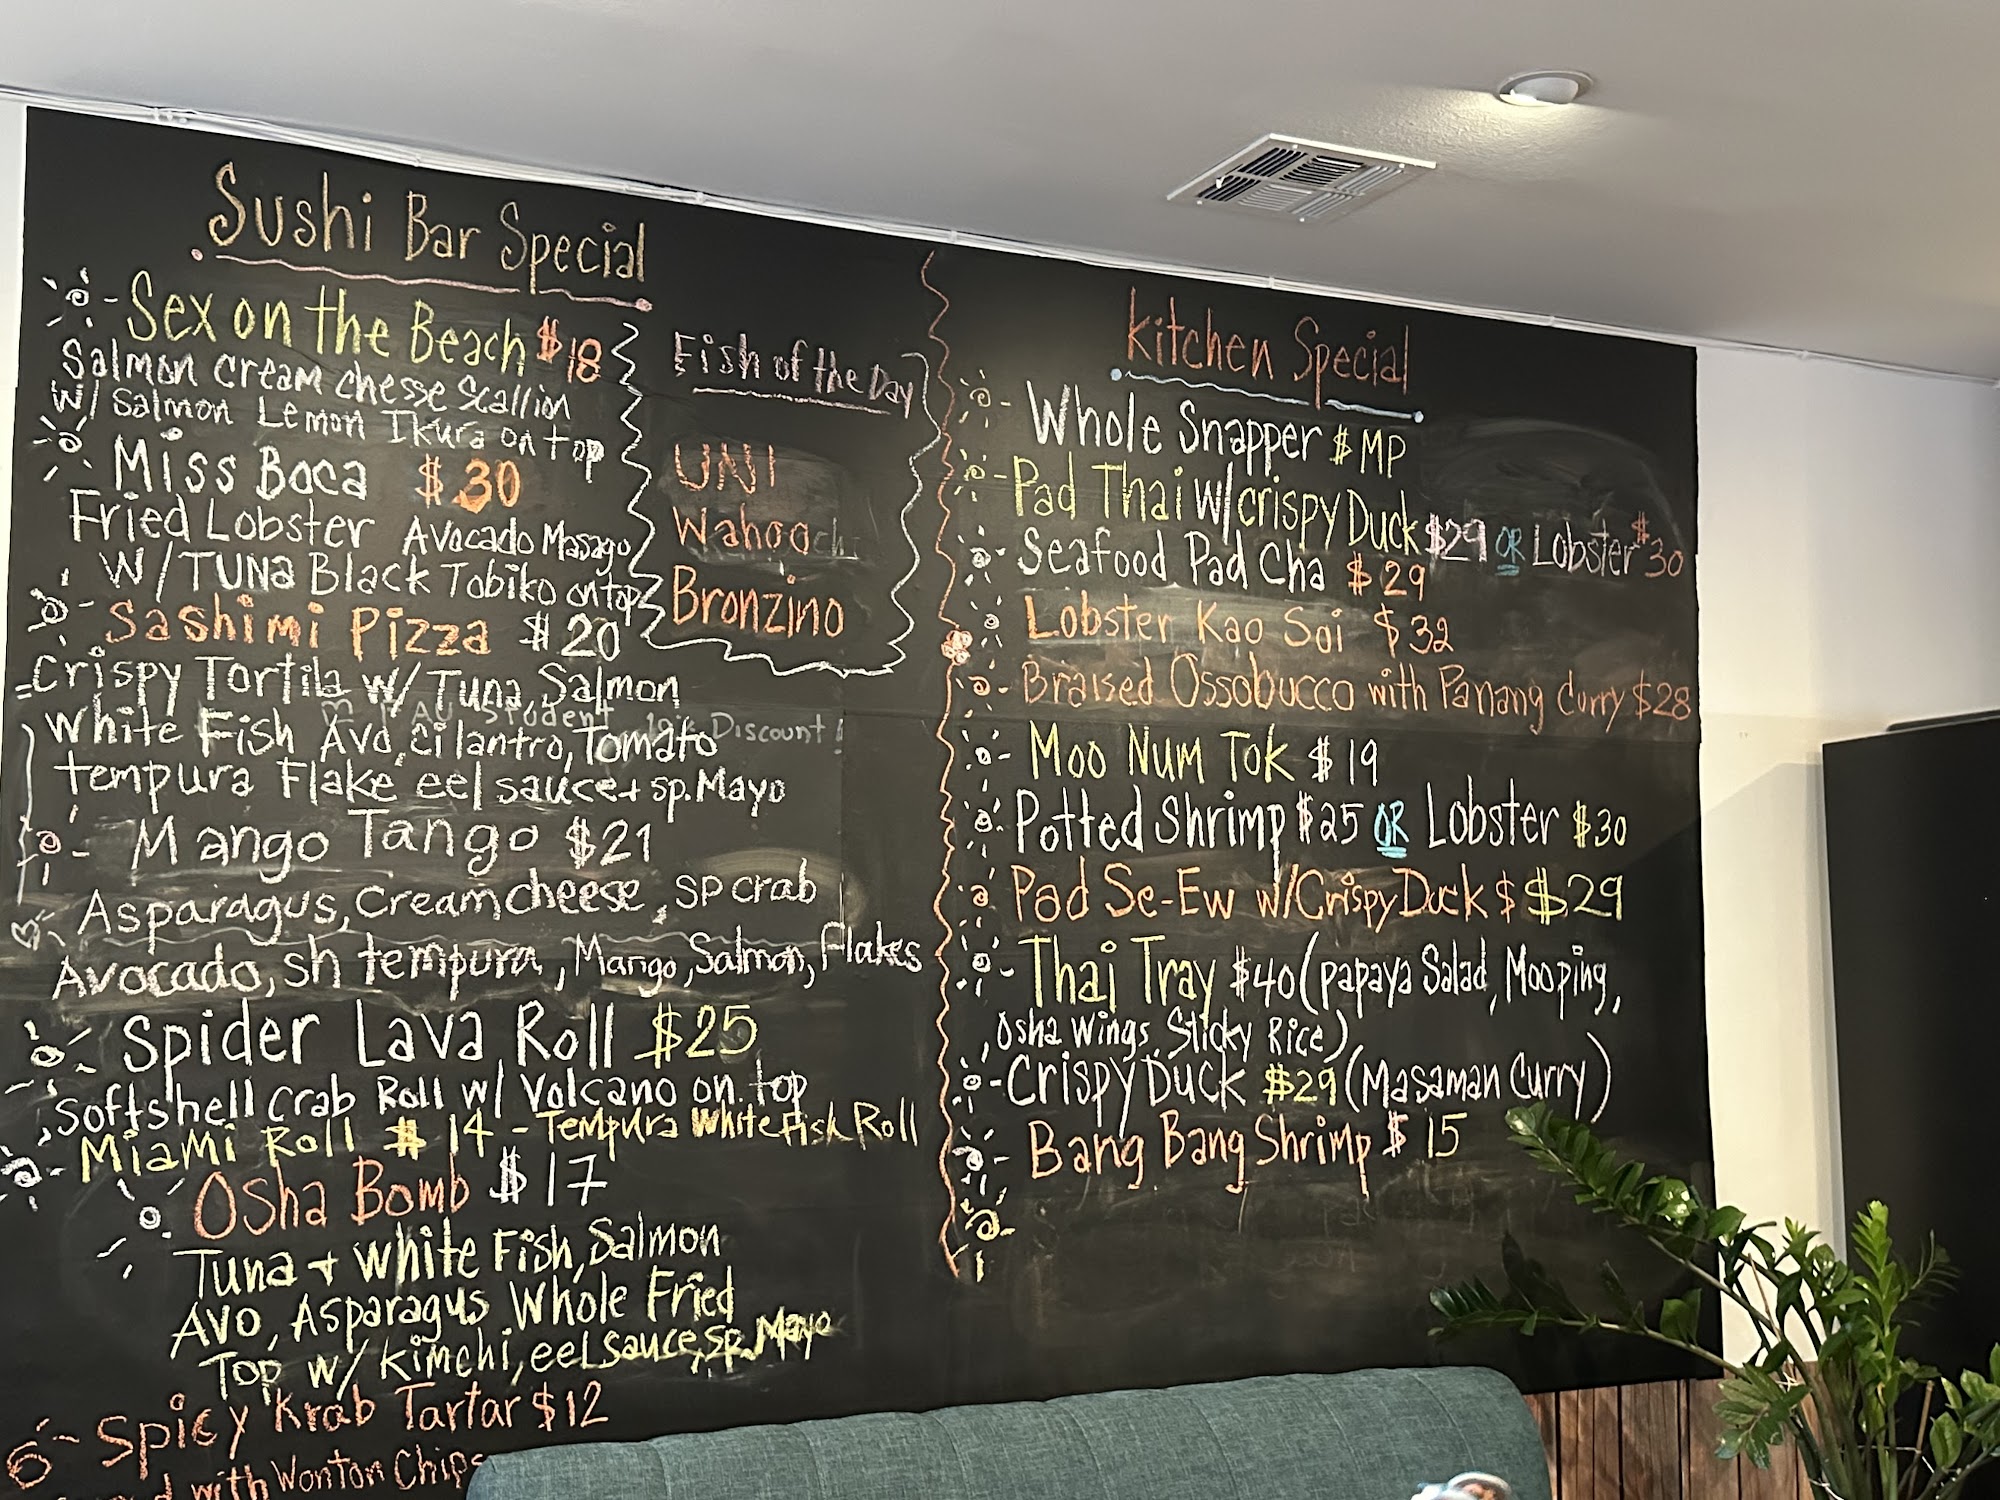 Sushi Bar Special
Sex on the Beach $18
Salmon cream chesse Scallion
w/ Salmon Lemon Ikura on top
Miss Boca $30
Fried Lobster Avocado Masago
W/TUNA Black Tobiko on top
Sashimi Pizza $20
Crispy Tortila w/ Tuna, Salmon
White Fish Avo, cilantro, Tomato
tempura Flake eel sauce + sp. Mayo
Student Discount!
Mango Tango $21
Asparagus, Cream cheese, sp crab
Avocado, sh tempura, Mango, Salmon, Flakes
Spider Lava Roll $25
Softshell crab Roll w/ Volcano on top
Miami Roll $14 - Tempura White Fish Roll
Osha Bomb $17
Tuna + White Fish, Salmon
Avo, Asparagus Whole Fried
Top w/ Kimchi, eel sauce, sp. Mayo
Spicy Krab Tartar $12
with Wonton Chips
Fish of the Day
UNI
Wahoo
Bronzino
Kitchen Special
Whole Snapper $ MP
Pad Thai w/crispy Duck $29 OR Lobster $30
Seafood Pad Cha $29
Lobster Kao Soi $32
Braised Ossobucco with Panang Curry $28
Moo Num Tok $19
Potted Shrimp $25 OR Lobster $30
Pad Se-Ew w/Crispy Duck $ $29
Thai Tray $40 (papaya Salad, Mooping,
Osha Wings, Sticky Rice)
Crispy Duck $29 (Masaman Curry)
Bang Bang Shrimp $15